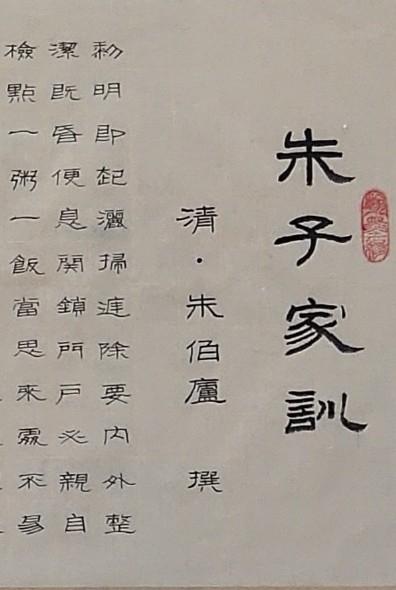 朱子家訓
清·朱伯廬 撰
黎明即起灑掃庭除要內外整
潔既昏便息関鎖門戶必親自
檢點一粥一飯當思來處不易